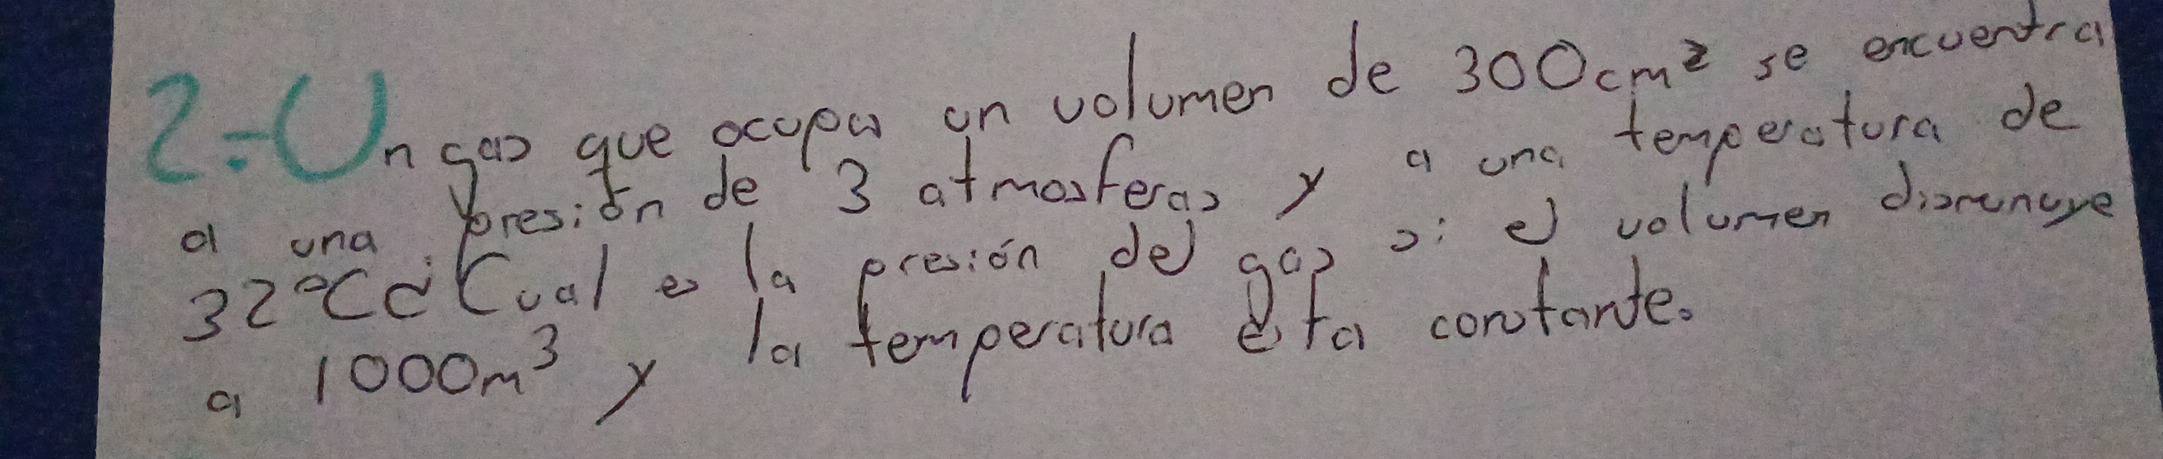 2-Un gas que ocupa un volumen de 300cm² se encuentra
a una presión de 3 atmosferas y a una temperatura de
32°C ¿Cual es la presión del gas si el volumen disminuye
a 1000m³ y la temperatura esta constante.